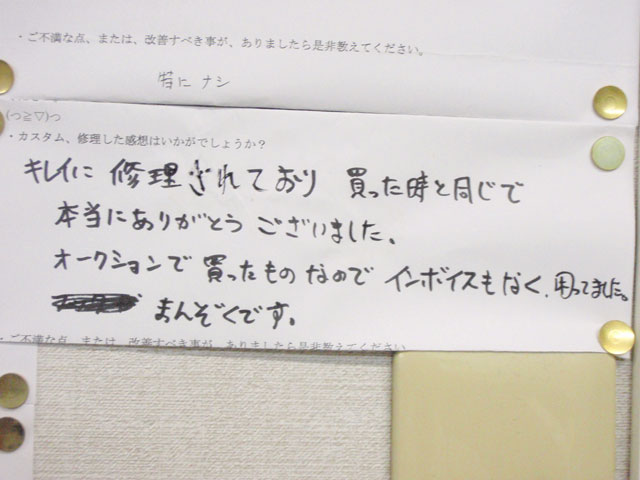 ・ご不満な点、または、改善すべき事が、ありましたら是非教えてください。
特に ナシ
(つ≧▽)つ
・カスタム、修理した感想はいかがでしょうか?
キレイに 修理されており 買った時と同じで
本当にありがとう ございました。
オークションで 買ったもの なので インボイスもなく、困ってました。
まんぞくです。
・ご不満な点、または、改善すべき事が、ありましたら是非教えてください。